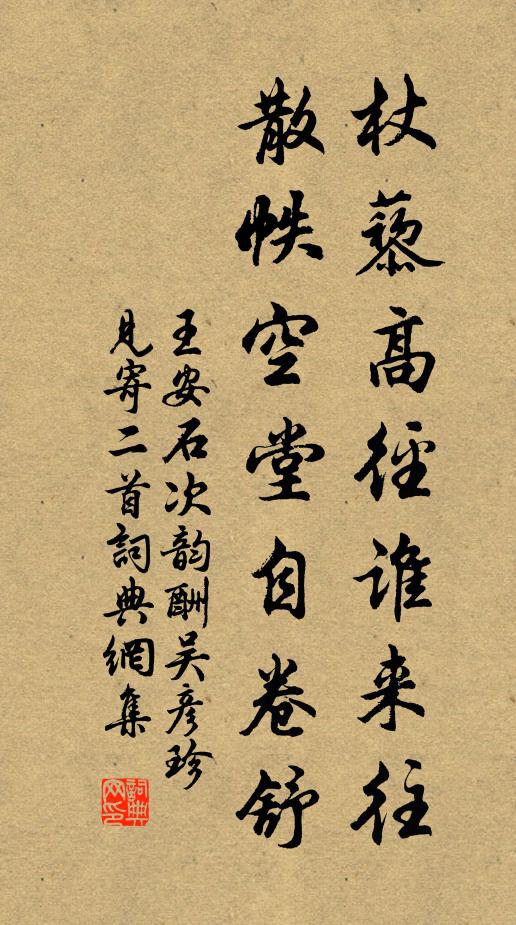 杖藜高徑誰来往
散帙空堂自卷舒
王安石次韵酬吴彦珍
見寄二首詞典網集
詞典网印